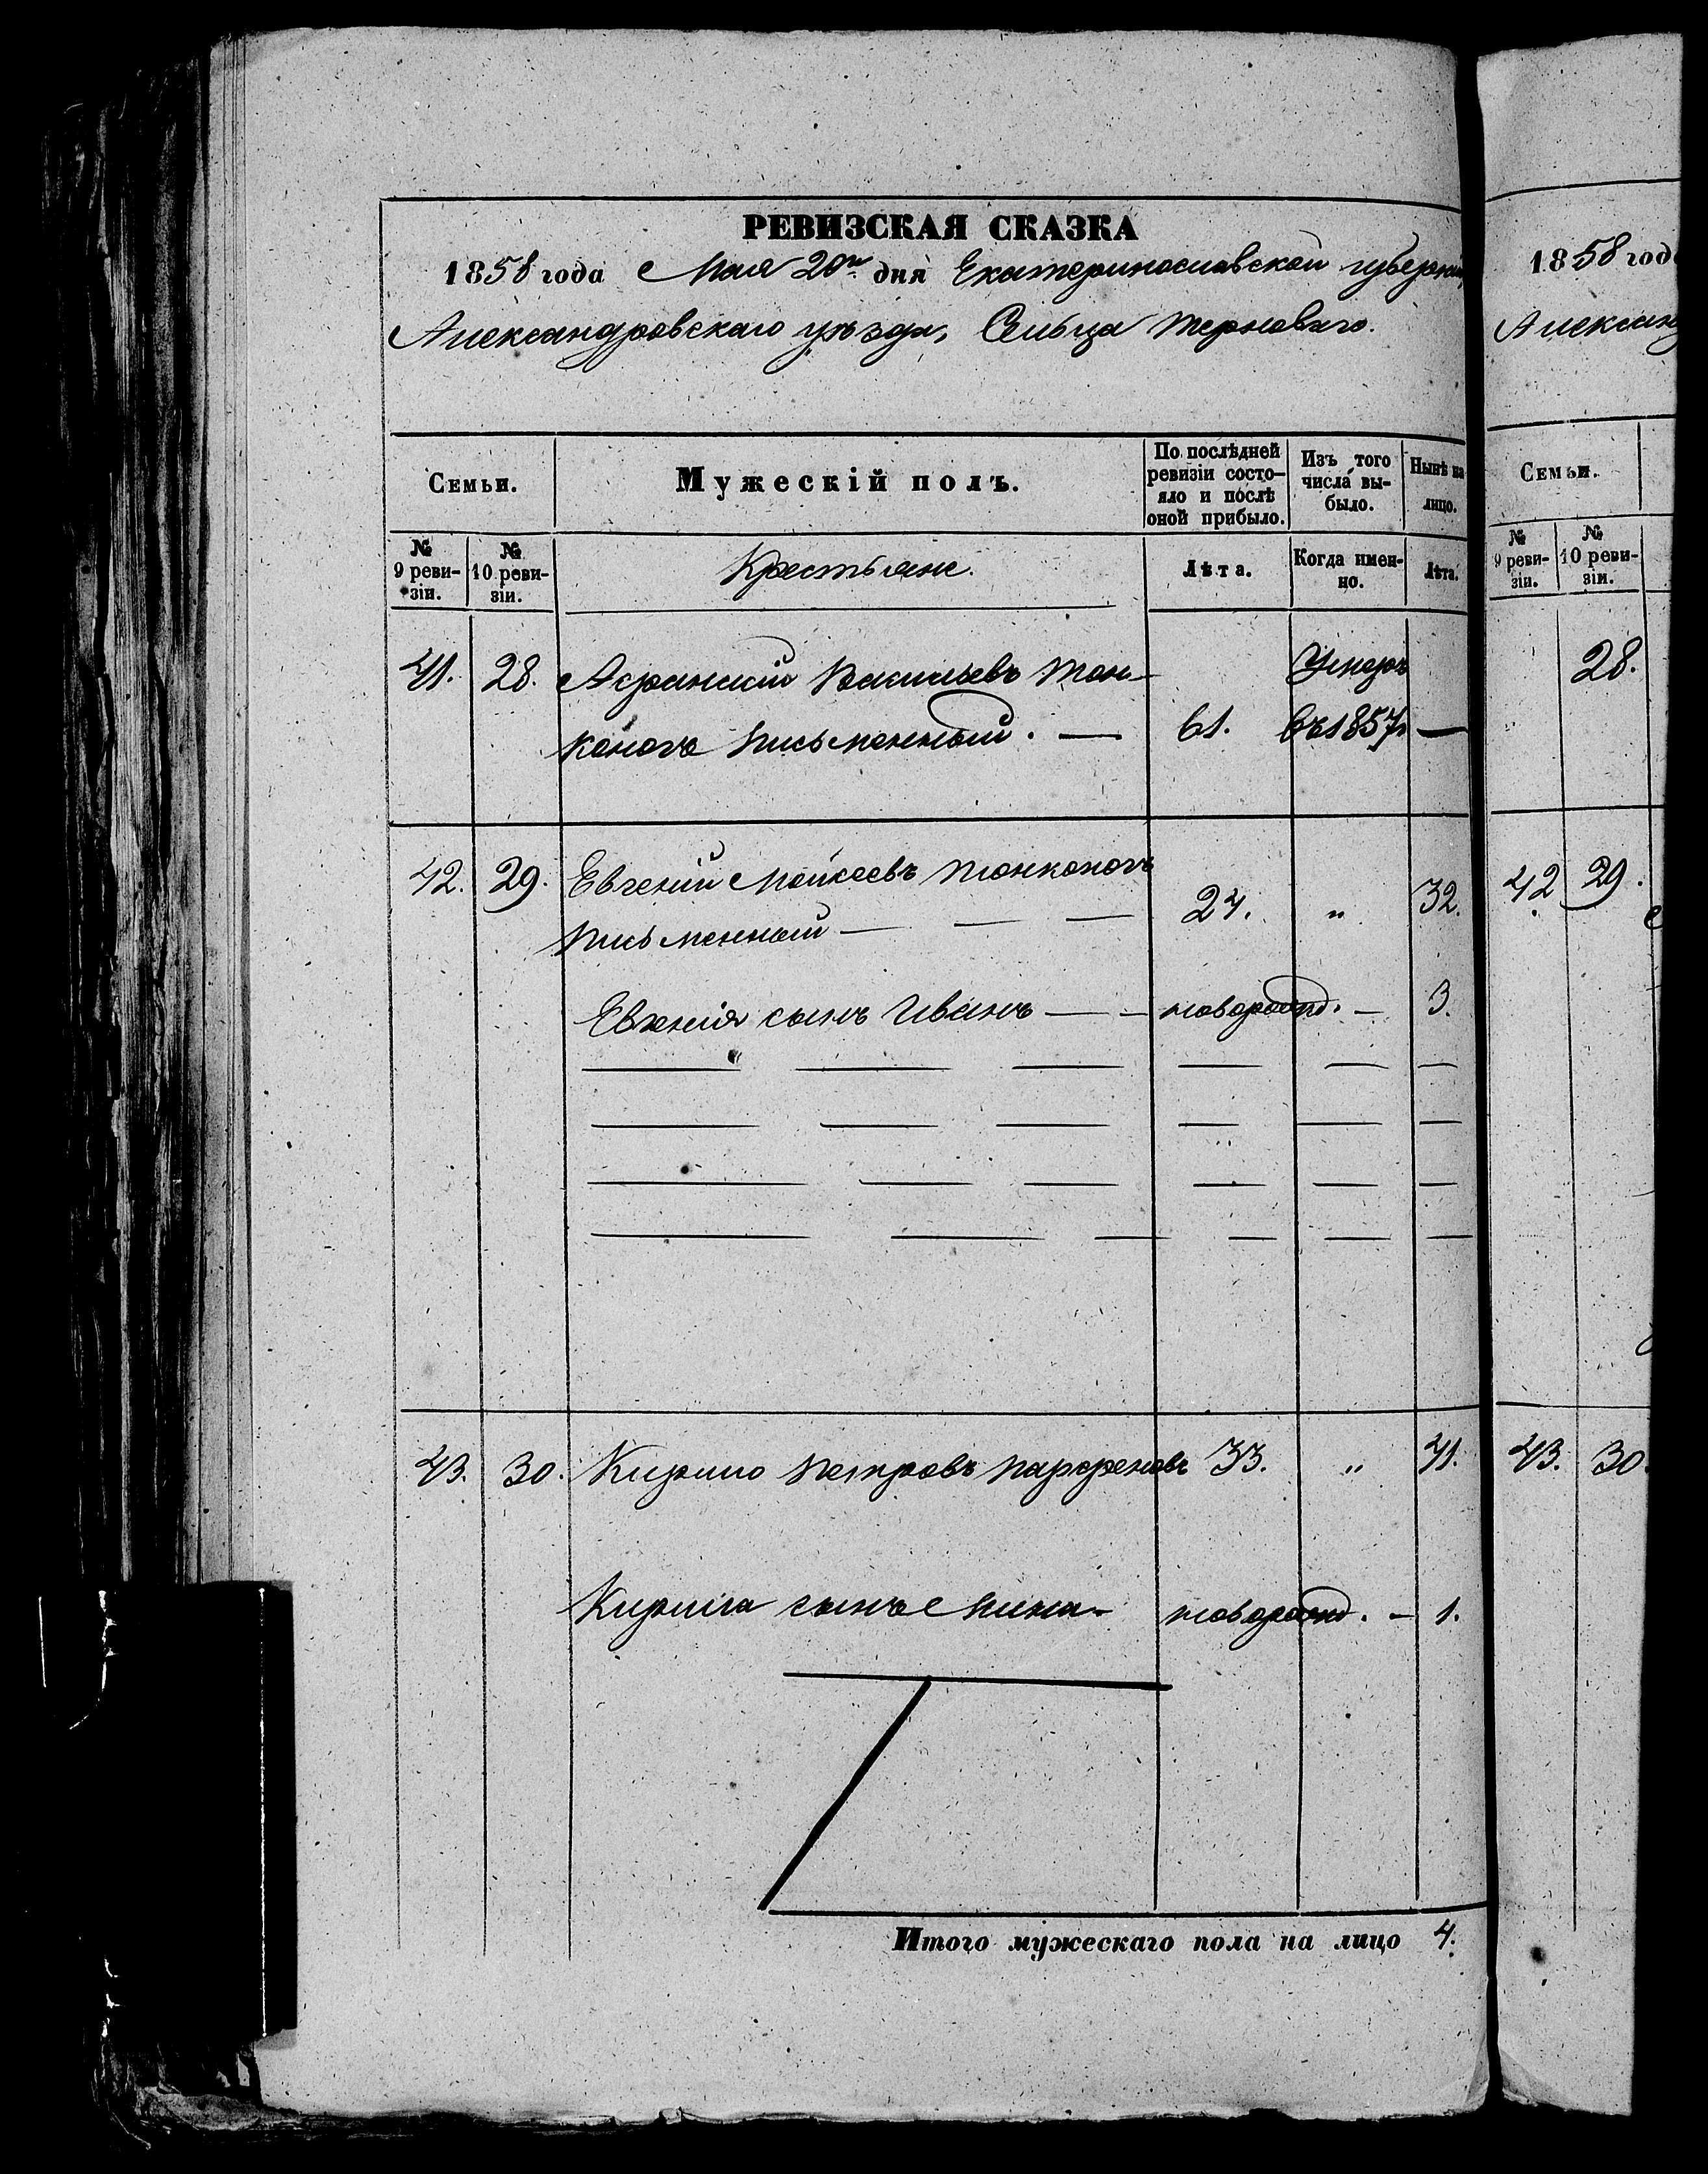 РЕВИЗСКАЯ СКАЗКА
1858 года Мая 20го дня Екатеринославской губерніи
Александровскаго уѣзда, Сельца Терноваго.
Семьи.
Мужескій полъ.
По послѣдней ревизіи состо-
яло и послѣ оной прибыло.
Изъ того числа вы-
было.
Нынѣ на лицо.
№ 9 реви-
зіи.
№ 10 реви-
зіи.
Крестьяне.
Лѣта.
Когда имен-
но.
Лѣта.
41. 28. Васильевъ Тон-
коногъ Письменный. — 61. въ 1857 —
42. 29. Евгеній Моисеевъ Тонконогъ
Письменный — — — 24. „ 32.
Евгенія сынъ Иванъ — — новорожд. — 3.
43. 30. Кирило Петровъ Парфеновъ 33. „ 41.
Кирила сынъ новорожд. — 1.
Итого мужескаго пола на лицо 4.
1858 год
Александ
Семьи.
№ 9 реви-
зіи.
№ 10 реви-
зіи.
28.
42 29.
43. 30.